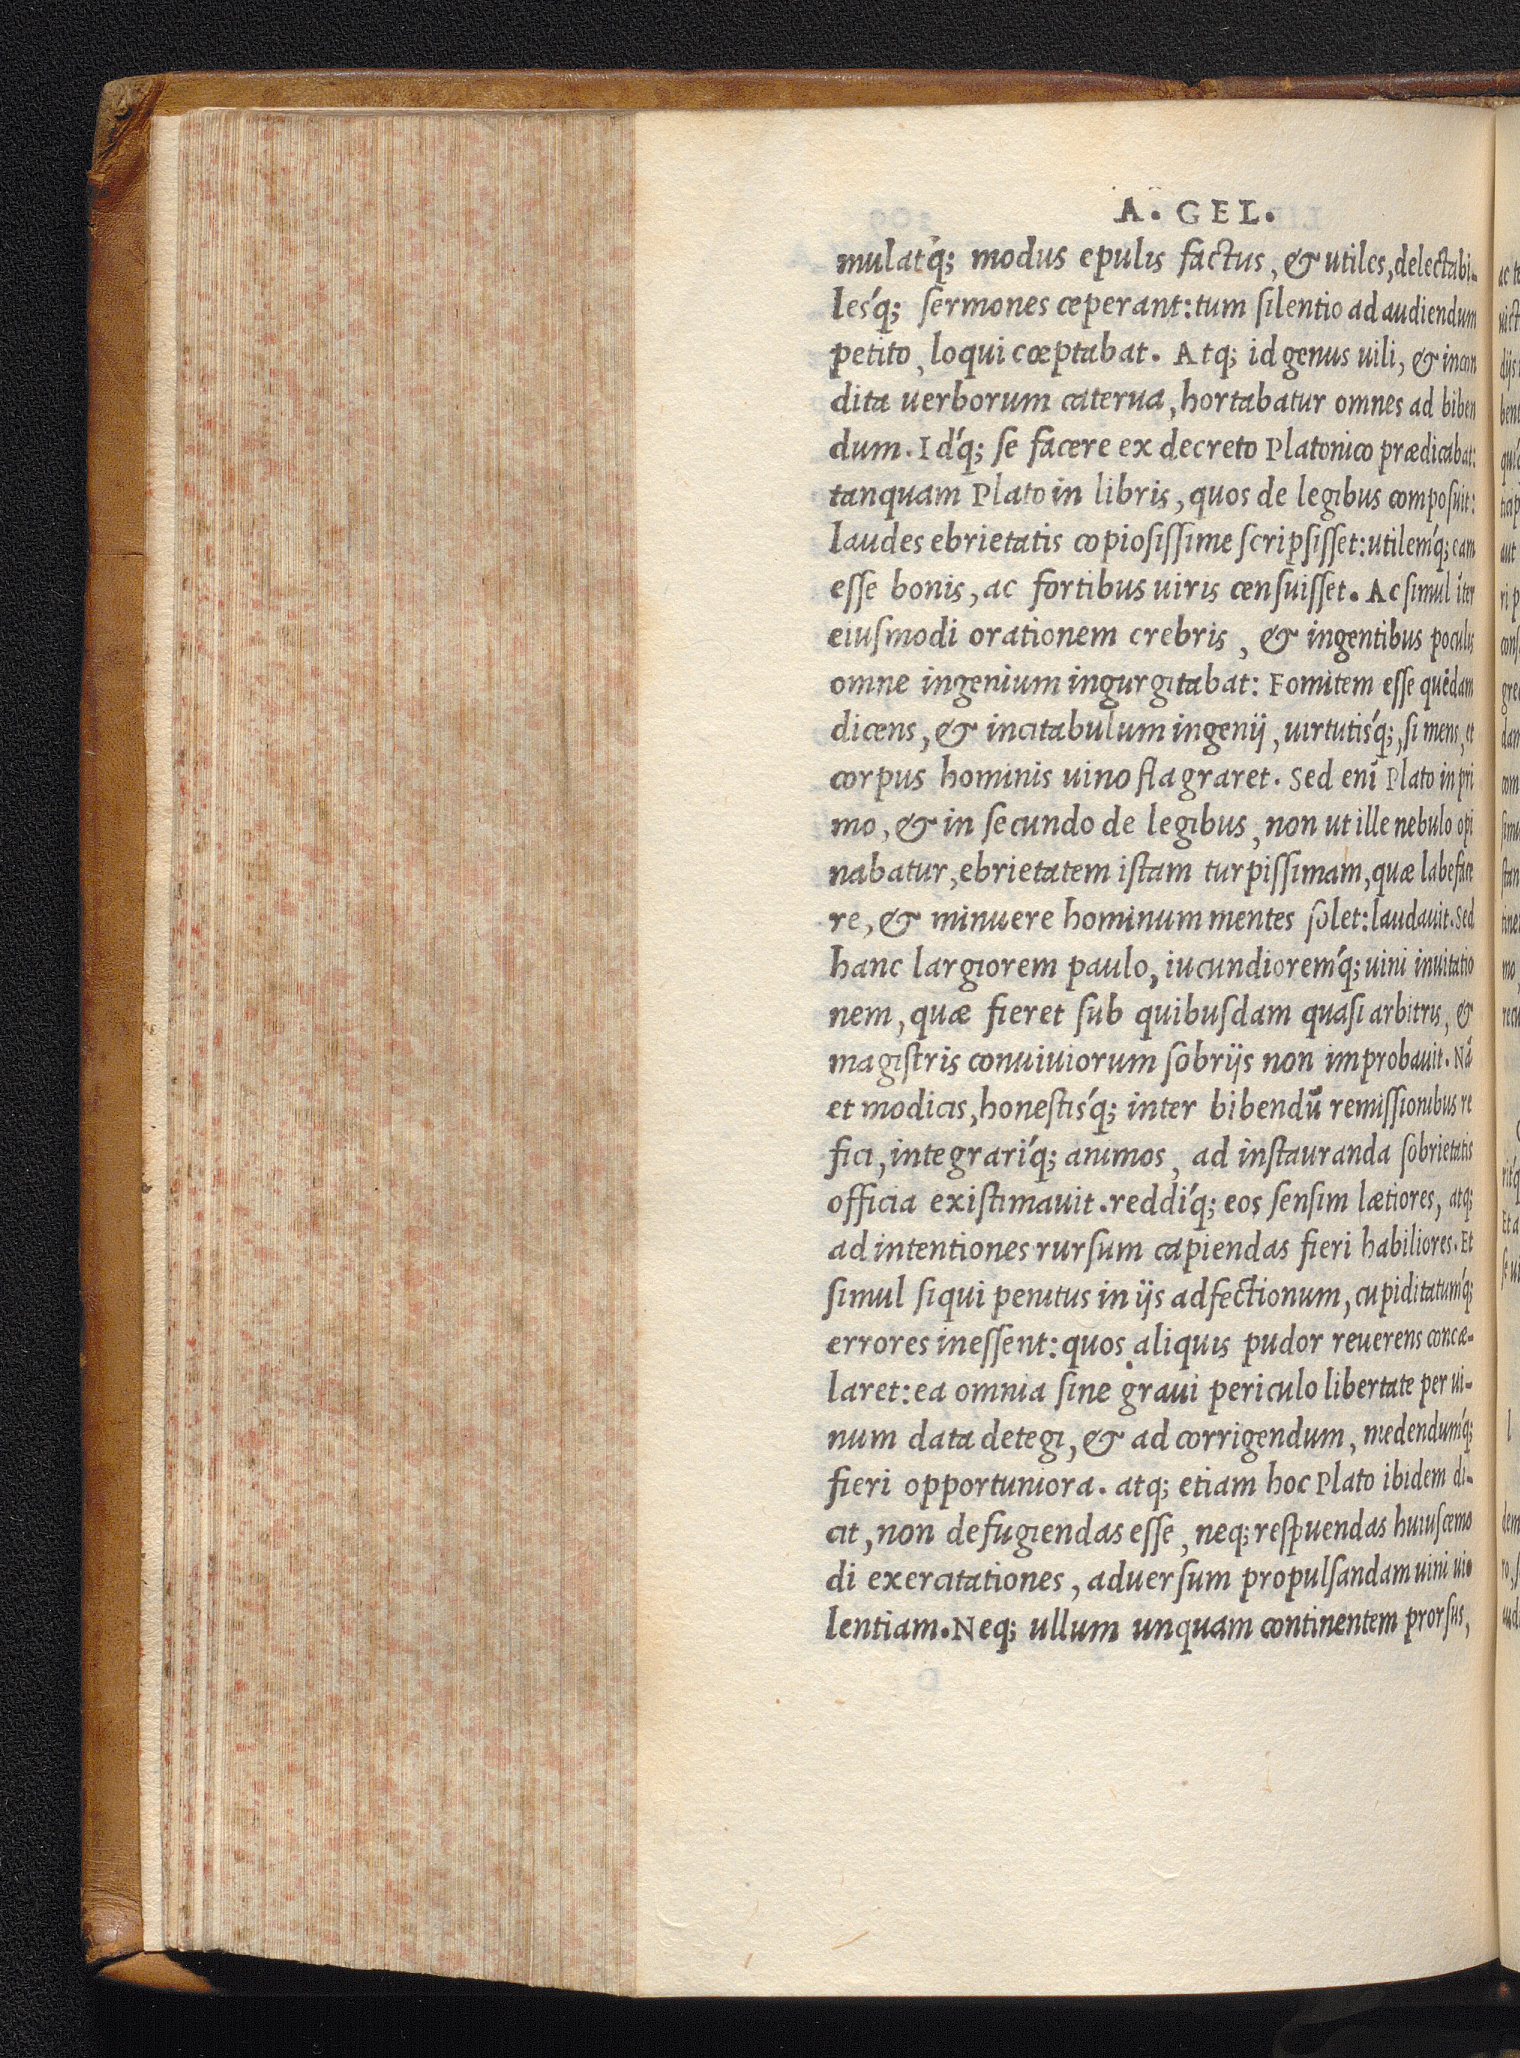 A. GEL.
mulatq́; modus epulis factus, & utiles, delectabi-
lesq́; sermones ceperant: tum silentio ad audiendum
petito, loqui cœptabat. Atq; id genus uili, & incon
dita uerborum caterua, hortabatur omnes ad biben
dum. Idq́; se facere ex decreto Platonico prædicabat:
tanquam Plato in libris, quos de legibus composuit:
laudes ebrietatis copiosissime scripsisset: utilemq́; eam
esse bonis, ac fortibus uiris censuisset. Ac simul iter
eiusmodi orationem crebris, & ingentibus poculis
omne ingenium ingurgitabat: Fomitem esse quẽdam
dicens, & incitabulum ingenij, uirtutisq́;, si mens, et
corpus hominis uino flagraret. Sed enĩ Plato in pri
mo, & in secundo de legibus, non ut ille nebulo opi
nabatur, ebrietatem istam turpissimam, quæ labeface
re, & minuere hominum mentes solet: laudauit. Sed
hanc largiorem paulo, iucundioremq́; uini inuitatio
nem, quæ fieret sub quibusdam quasi arbitris, &
magistris conuiuiorum sobrijs non improbauit. Nã
et modicis, honestisq́; inter bibendũ remissionibus re
fici, integrariq́; animos, ad instauranda sobrietatis
officia existimauit. reddiq́; eos sensim lætiores, atq;
ad intentiones rursum capiendas fieri habiliores. Et
simul siqui penitus in ijs adfectionum, cupiditatumq́;
errores inessent: quos aliquis pudor reuerens concæ-
laret: ea omnia sine graui periculo libertate per ui-
num data detegi, & ad corrigendum, medendumq́;
fieri opportuniora. atq; etiam hoc Plato ibidem di-
cit, non defugiendas esse, neq; respuendas huiuscemo
di exercitationes, aduersum propulsandam uini uio
lentiam. Neq; ullum unquam continentem prorsus,